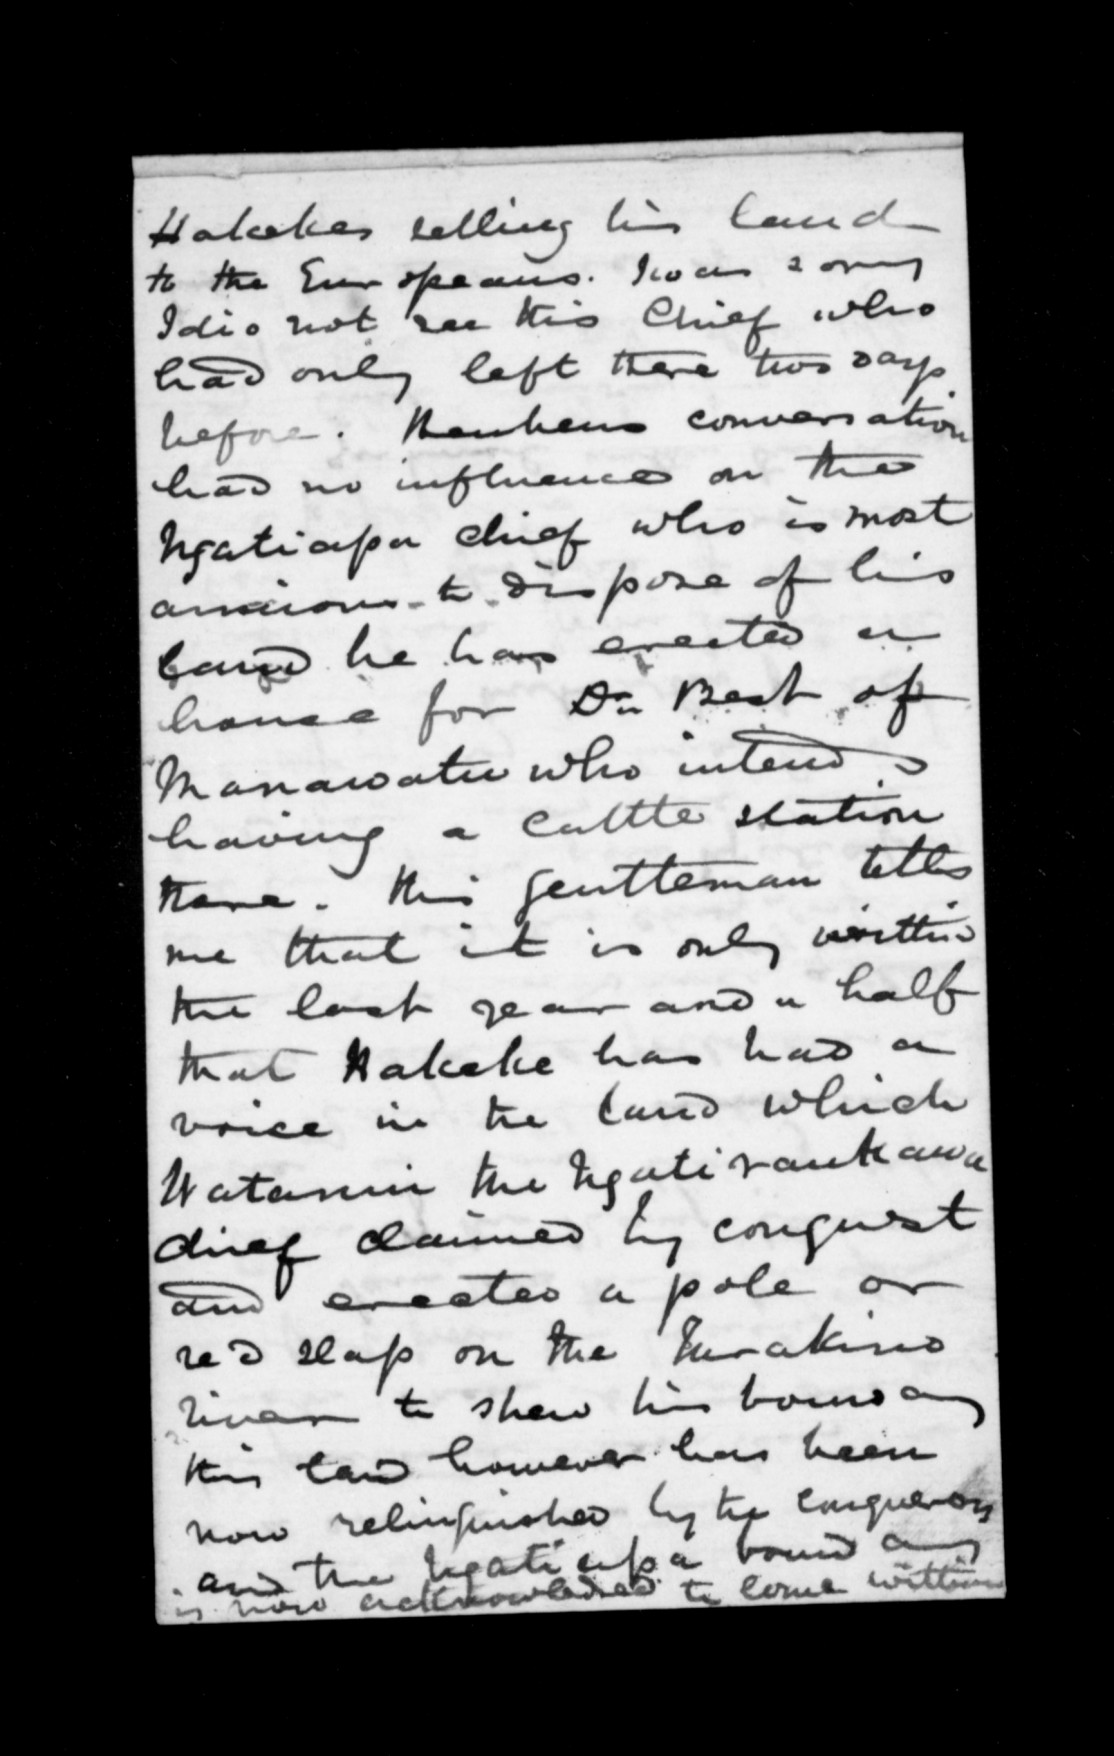 Hakekes selling his land
to the Europeans. I was sorry
I did not see this Chief who
had only left there two days
before. conversation
had no influence on the
Ngatiapa chief who is most
anxious to dispose of his
land he has erected a
house for Dr Best of
Manawatu who intends
having a cattle station
there. this gentleman tells
me that it is only within
the last year and a half
that Hakeke has had a
voice in the land which
Watanui the Ngatiraukawa
chief claimed by conquest
and erected a pole or
red slap on the Turakino
river to shew his boundary
this land however has been
now relinquished by the conquerors
and the Ngatiapa boundary
is now acknowledged to come within